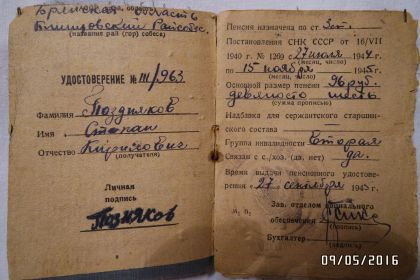 Брянская область
Клинцовский Райсобес
(название рай (гор) собеса)
УДОСТОВЕРЕНИЕ № III/963
Фамилия Поздняков
Имя Степан
Отчество Кирилович
(получателя)
Личная
подпись
Позняков
Пенсия назначена по ст. 3 ст.
Постановления СНК СССР от 16/VII
1940 г № 1269 с 27 июля 1944 г
(месяц, число)
по 15 ноября 1945 г.
(месяц, число)
Основной размер пенсии 96 руб.
девяносто шесть
(сумма прописью)
Надбавка для сержантского старшин-
ского состава
Группа инвалидности Вторая
Связан с с./хоз. (да, нет) да.
Время выдачи пенсионного удостове-
рения « 27 сентября 194 г.
Зав. отделом социального
обеспечения
(подпись)
м. п.
Бухгалтер
(подпись)
09/05/2016